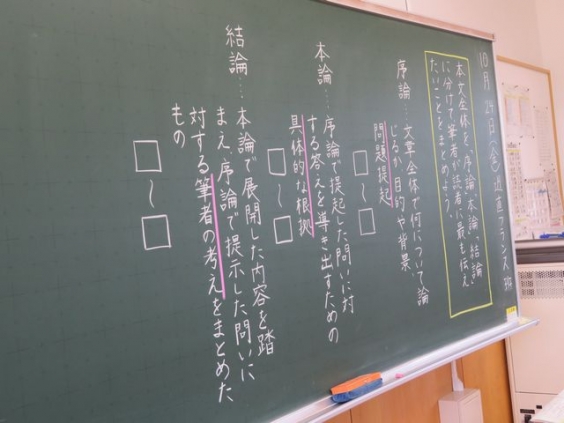 10月24日(金) 日直 フランス 班
本文全体を、「序論・本論・結論」
に分けて、筆者が読者に最も伝え
たいことをまとめよう。
序論…文章全体で何について論
じるか、目的や背景
問題提起
□〜□
本論…序論で提起した問いに対
する答えを導き出すための
具体的な根拠
□〜□
結論…本論で展開した内容を踏
まえ、序論で提示した問いに
対する筆者の考えをまとめた
もの
□〜□